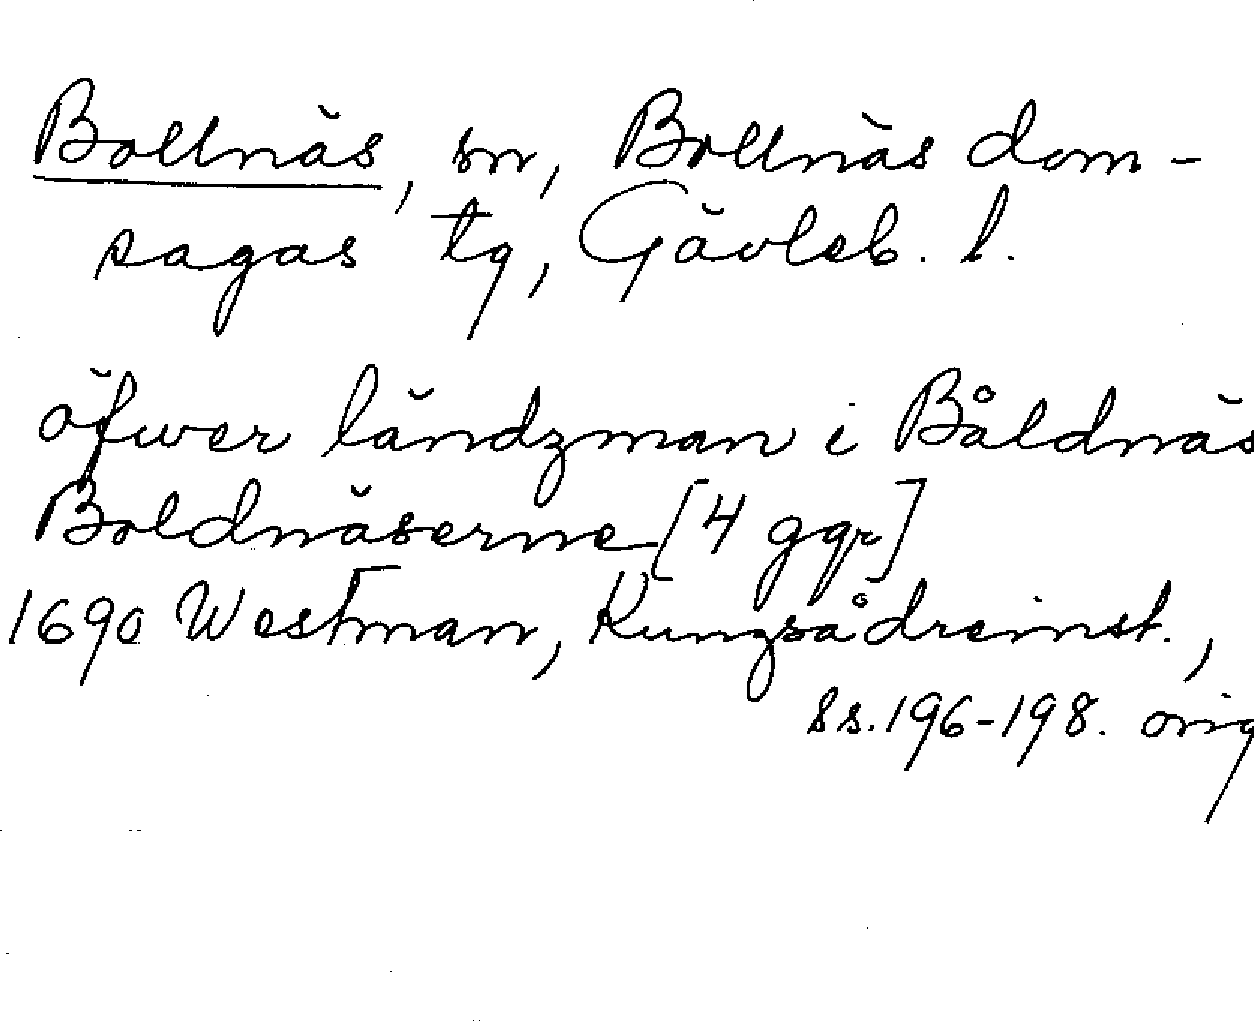 Bollnäs, sn, Bollnäs dom-
sagas tg, Gävleb. l.
öfwer ländzman i Båldnäs
Boldnäserne [4 ggr]
1690 Westman, Kungsådreinst.,
ss. 196-198. orig